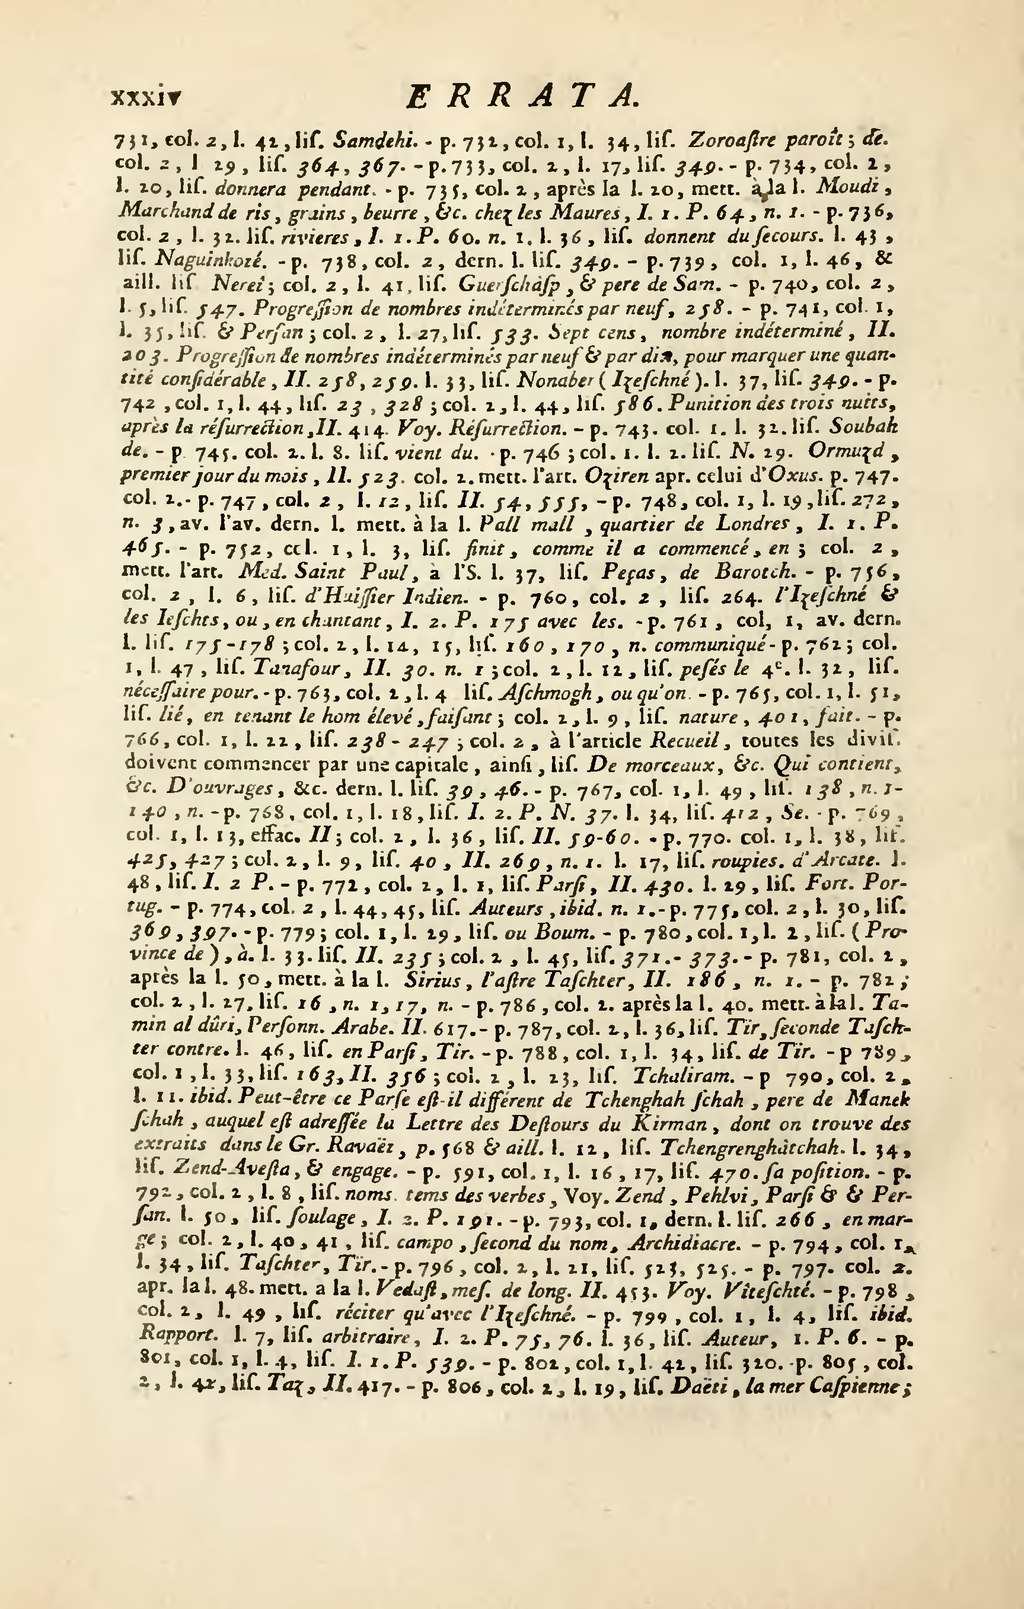 xxxiv E R R A T A.
731, col. 2, l. 42, liſ. Samdehi. - p. 732, col. 1, l. 34, liſ. Zoroaſtre paroît ; de.
col. 2, l 29, liſ. 364, 367. - p. 733, col. 2, l. 17, liſ. 349. - p. 734, col. 2,
l. 20, liſ. donnera pendant. - p. 735, col. 2, après la l. 20, mett. à la l. Moudi,
Marchand de ris, grains, beurre, &c. chez les Maures, I. 1. P. 64, n. 1. - p. 736,
col. 2, l. 32. liſ. rivieres, I. 1. P. 60. n. 1. l. 36, liſ. donnent du ſecours. l. 43,
liſ. Naguinkozé. - p. 738, col. 2, dern. l. liſ. 349. - p. 739, col. 1, l. 46, &
aill. liſ Nereï ; col. 2, l. 41, liſ. Guerſchâſp, & pere de Sam. - p. 740, col. 2,
l. 5, liſ. 547. Progreſſion de nombres indéterminés par neuf, 258. - p. 741, col. 1,
l. 35, liſ. & Perſan ; col. 2, l. 27, liſ. 533. Sept cens, nombre indéterminé, II.
203. Progreſſion de nombres indéterminés par neuf & par dix, pour marquer une quan-
tité conſidérable, II. 258, 259. l. 33, liſ. Nonaber ( Izeſchné ). l. 37, liſ. 349. - p.
742, col. 1, l. 44, liſ. 23, 328 ; col. 2, l. 44, liſ. 586. Punition des trois nuits,
après la réſurrection, II. 414. Voy. Réſurrection. - p. 743. col. 1. l. 32. liſ. Soubah
de. - p. 745. col. 2. l. 8. liſ. vient du. - p. 746 ; col. 1. l. 2. liſ. N. 29. Ormuzd,
premier jour du mois, II. 523. col. 2. mett. l'art. Oziren apr. celui d'Oxus. p. 747.
col. 2. - p. 747, col. 2, l. 12, liſ. II. 54, 555, - p. 748, col. 1, l. 19, liſ. 272,
n. 3, av. l'av. dern. l. mett. à la l. Pall mall, quartier de Londres, I. 1. P.
465. - p. 752, col. 1, l. 3, liſ. finit, comme il a commencé, en ; col. 2,
mett. l'art. Med. Saint Paul, à l'S. l. 37, liſ. Peças, de Barotch. - p. 756,
col. 2, l. 6, liſ. d'Huiſſier Indien. - p. 760, col. 2, liſ. 264. l'Izeſchné &
les Ieſchts, ou, en chantant, I. 2. P. 175 avec les. - p. 761, col, 1, av. dern.
l. liſ. 175-178 ; col. 2, l. 14, 15, liſ. 160, 170, n. communiqué - p. 762 ; col.
1, l. 47, liſ. Tanafour, II. 30. n. 1 ; col. 2, l. 12, liſ. peſés le 4e. l. 32, liſ.
néceſſaire pour. - p. 763, col. 2, l. 4 liſ. Aſchmogh, ou qu'on. - p. 765, col. 1, l. 51,
liſ. lié, en tenant le hom élevé, faiſant ; col. 2, l. 9, liſ. nature, 401, fait. - p.
766, col. 1, l. 22, liſ. 238 - 247 ; col. 2, à l'article Recueil, toutes les diviſ.
doivent commencer par une capitale, ainſi, liſ. De morceaux, &c. Qui contient,
&c. D'ouvrages, &c. dern. l. liſ. 39, 46. - p. 767, col. 1, l. 49, liſ. 138, n. 1-
140, n. - p. 768, col. 1, l. 18, liſ. I. 2. P. N. 37. l. 34, liſ. 412, Se. - p. 769,
col. 1, l. 13, effac. II ; col. 2, l. 36, liſ. II. 59-60. - p. 770. col. 1, l. 38, liſ.
425, 427 ; col. 2, l. 9, liſ. 40, II. 269, n. 1. l. 17, liſ. roupies. d'Arcate. l.
48, liſ. I. 2 P. - p. 772, col. 2, l. 1, liſ. Parſi, II. 430. l. 29, liſ. Fort. Por-
tug. - p. 774, col. 2, l. 44, 45, liſ. Auteurs, ibid. n. 1. - p. 775, col. 2, l. 30, liſ.
369, 397. - p. 779 ; col. 1, l. 29, liſ. ou Boum. - p. 780, col. 1, l. 2, liſ. ( Pro-
vince de ), à. l. 33. liſ. II. 235 ; col. 2, l. 45, liſ. 371. - 373. - p. 781, col. 2,
après la l. 50, mett. à la l. Sirius, l'aſtre Taſchter, II. 186, n. 1. - p. 782 ;
col. 2, l. 27, liſ. 16, n. 1, 17, n. - p. 786, col. 2. après la l. 40. mett. à la l. Ta-
min al dûri, Perſonn. Arabe. II. 617. - p. 787, col. 2, l. 36, liſ. Tir, ſeconde Taſch-
ter contre. l. 46, liſ. en Parſi, Tir. - p. 788, col. 1, l. 34, liſ. de Tir. - p 789,
col. 1, l. 33, liſ. 163, II. 356 ; col. 2, l. 23, liſ. Tchaliram. - p 790, col. 2,
l. 11. ibid. Peut-être ce Parſe eſt-il différent de Tchenghah ſchah, pere de Manek
ſchah, auquel eſt adreſſée la Lettre des Deſtours du Kirman, dont on trouve des
extraits dans le Gr. Ravaët, p. 568 & aill. l. 12, liſ. Tchengrenghâtchah. l. 34,
liſ. Zend-Aveſta, & engage. - p. 591, col. 1, l. 16, 17, liſ. 470. ſa poſition. - p.
792, col. 2, l. 8, liſ. noms. tems des verbes, Voy. Zend, Pehlvi, Parſi & & Per-
ſan. l. 50, liſ. ſoulage, I. 2. P. 191. - p. 793, col. 1, dern. l. liſ. 266, en mar-
ge ; col. 2, l. 40, 41, liſ. campo, ſecond du nom, Archidiacre. - p. 794, col. 1,
l. 34, liſ. Taſchter, Tir. - p. 796, col. 2, l. 21, liſ. 523, 525. - p. 797. col. 2.
apr. la l. 48. mett. a la l. Vedaſt, meſ. de long. II. 453. Voy. Viteſchté. - p. 798,
col. 2, l. 49, liſ. réciter qu'avec l'Izeſchné. - p. 799, col. 1, l. 4, liſ. ibid.
Rapport. l. 7, liſ. arbitraire, I. 2. P. 75, 76. l. 36, liſ. Auteur, 1. P. 6. - p.
801, col. 1, l. 4, liſ. I. 1. P. 539. - p. 802, col. 1, l. 42, liſ. 320. - p. 805, col.
2, l. 42, liſ. Taz, II. 417. - p. 806, col. 2, l. 19, liſ. Daëti, la mer Caſpienne ;